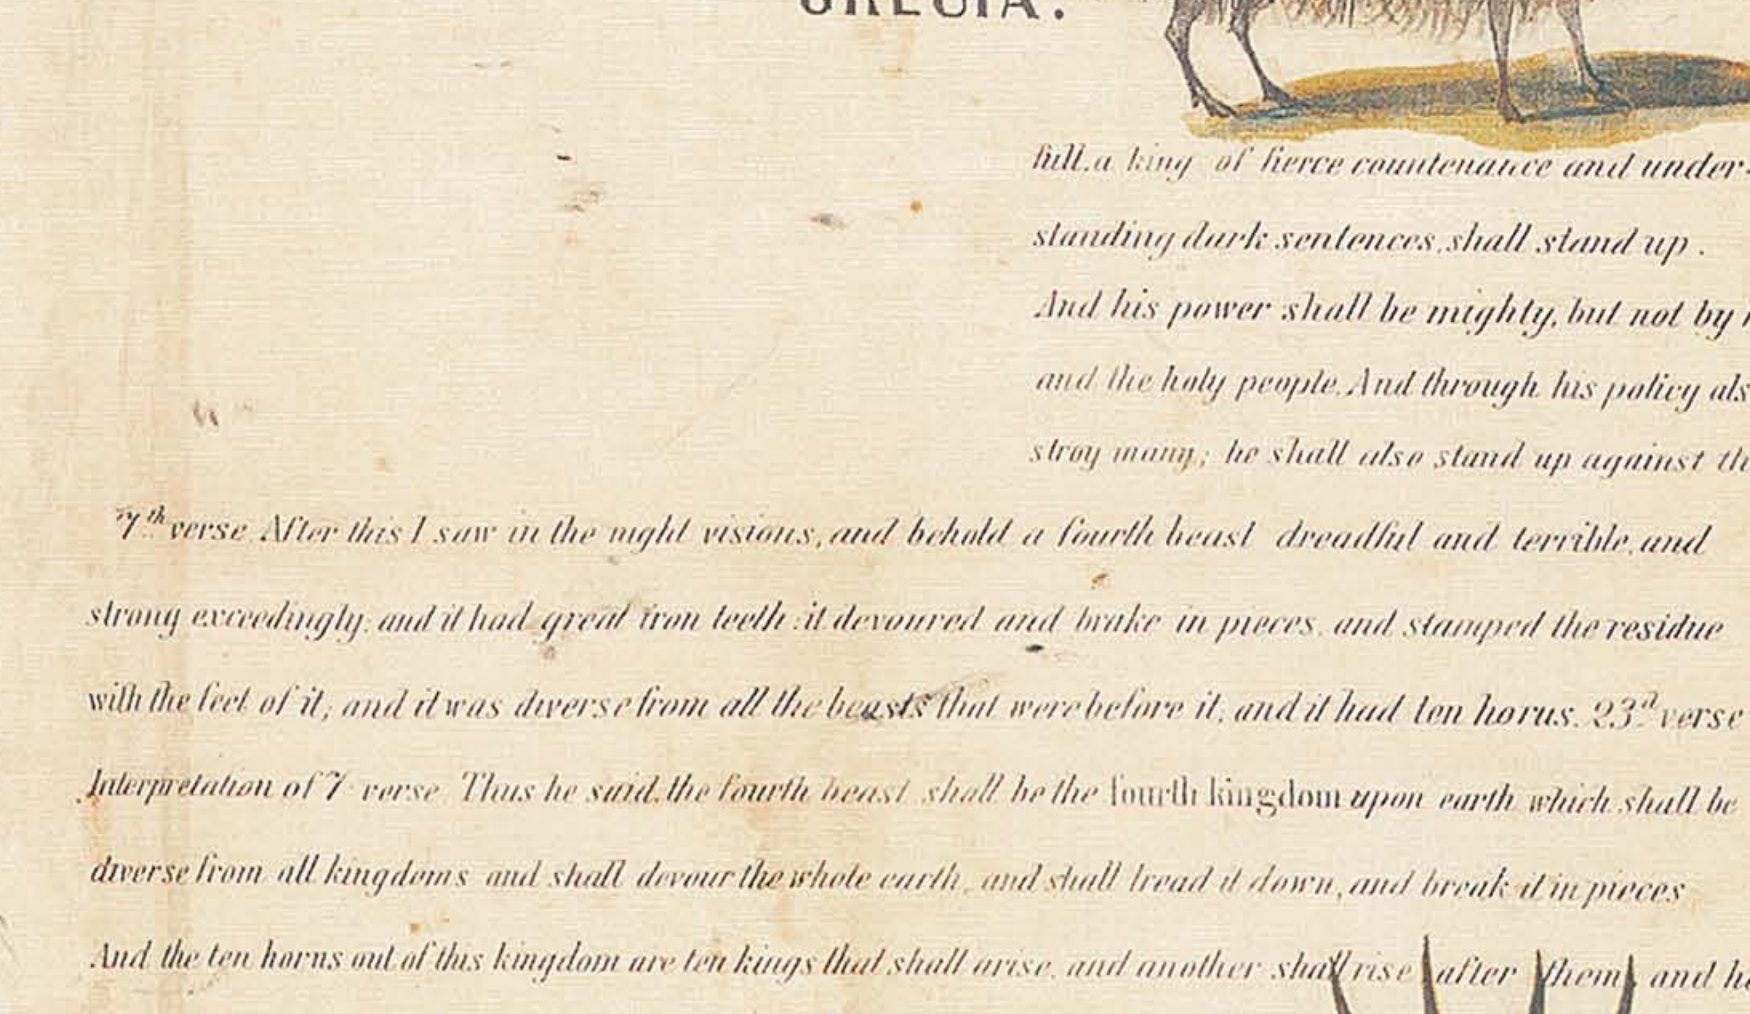 GRECIA.
full. a king of fierce countenance and under-
standing dark sentences, shall stand up.
And his power shall be mighty, but not by
and the holy people. And through his policy als
stroy many; he shall also stand up against th
7th verse After this I saw in the night visions, and behold a fourth beast dreadful and terrible, and
strong exceedingly; and it had great iron teeth: it devoured and brake in pieces, and stamped the residue
with the feet of it; and it was diverse from all the beasts that were before it; and it had ten horus. 23d verse
Interpretation of 7 verse. Thus he said, the fourth beast shall be the fourth kingdom upon earth which shall be
diverse from all kingdoms and shall devour the whole earth, and shall tread it down, and break it in pieces
And the ten horns out of this kingdom are ten kings that shall arise, and another shall rise after them, and he